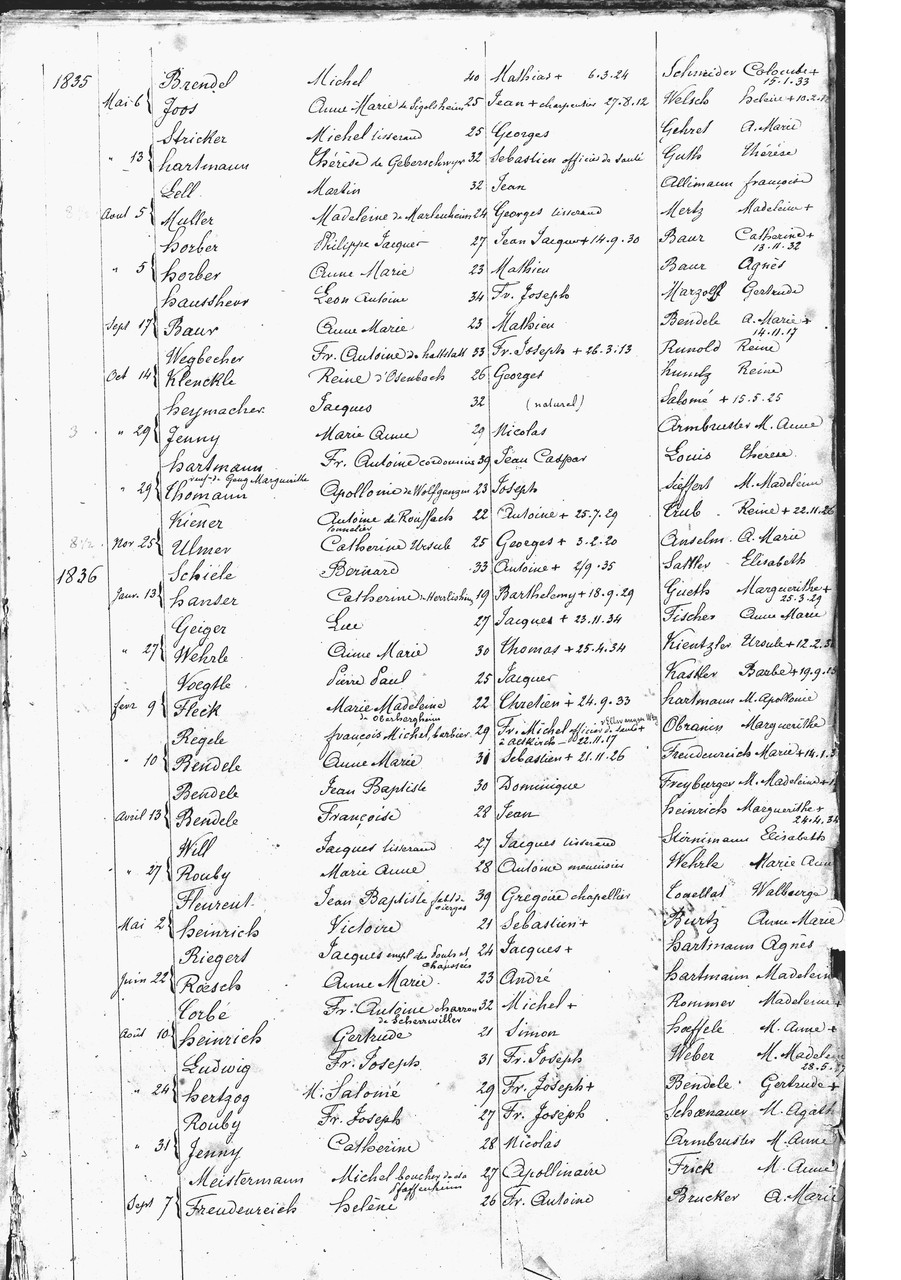 1835 Brendel Michel 40 Mathias + 6.3.24 Schneider Colombe +
15.1.33
Mai 6 Joos Anne Marie de Sigolsheim 25 Jean + charpentier 27.8.12 Welsch helene + 10.2.
Stricker Michel tisserand 25 Georges Gehret A. Marie
" 13 hartmann Thérèse de Geberschwyr 32 Sebastien officier de santé Guth Thérèse
Lell Martin 32 Jean Allimann françoise
Aout 5 Muller Madeleine de Marlenheim 24 Georges tisserand Mertz Madeleine +
horber Philippe Jacques 27 Jean Jacques + 14.9.30 Baur Catherine +
13.11.32
" 5 horber Anne Marie 23 Mathieu Baur Agnès
haussherr Leon Antoine 34 Fr. Joseph Marzolff Gertrude
Sept 17 Baur Anne Marie 23 Mathieu Bendele A. Marie +
14.11.17
Wegbecher Fr. Antoine de hattstatt 33 Fr. Joseph + 26.3.13 Runold Reine
Oct 14 Klenckle Reine d'Osenbach 26 Georges huntz Reine
heymacher Jacques 32 (naturel) Salomé + 15.5.25
3 " 29 Jenny Marie Anne 29 Nicolas Armbruster M. Anne
hartmann Fr. Antoine cordonnier 39 Jean Caspar Louis Thérèse
veuf de Gang Marguerite
" 29 Thomann Apollonie de Wolfganzen 23 Joseph Sieffert M. Madeleine
Kiener Antoine de Rouffach 22 Antoine + 25.7.29 Erub Reine + 22.11.26
tonnelier
8 1/2 Nov 25 Ulmer Catherine Ursule 25 Georges + 3.2.20 Anselm A. Marie
1836 Schiele Bernard 33 Antoine + 2/9.35 Sattler Elisabeth
Janv. 13 hanser Catherine de Herrlisheim 19 Barthelemy + 18.9.29 Gueth Marguerithe +
25.3.29
Geiger Luc 27 Jacques + 23.11.34 Fischer Anne Marie
" 27 Wehrle Anne Marie 30 Thomas + 25.4.34 Kientzler Ursule + 12.2.3
Voegtle Pierre Paul 25 Jacques Kastler Barbe + 19.9.
fevr 9 Fleck Marie Madeleine 22 Chretien + 24.9.33 hartmann M. Apollonie
de Oberbergheim
Regele françois Michel, barbier 29 Fr. Michel officier de santé + Obranin Marguerithe
à Altkirch 22.11.17
" 10 Bendele Anne Marie 31 Sebastien + 21.11.26 Freudenreich Marie + 14.1.
Bendele Jean Baptiste 30 Dominique Freyburger M. Madeleine +
Avril 13 Bendele Françoise 28 Jean heinrich Marguerithe +
24.4.34
Will Jacques tisserand 27 Jacques tisserand Störnimann Elisabeth
" 27 Rouby Marie Anne 28 Antoine menuisier Wehrle Marie Ann
Fleurent Jean Baptiste 39 Gregoire chapellier Walburge
Mai 2 heinrich Victoire 21 Sebastien + Burtz Anne Marie
Riegert Jacques empl. des Ponts et 24 Jacques + hartmann Agnès
chaussées
Juin 22 Rœsch Anne Marie 23 André hartmann Madelein
Corbé Fr. Antoine charron 32 Michel + Rommer Madeleine +
de Scherrwiller
Août 10 heinrich Gertrude 21 Simon hœffele M. Anne +
Ludwig Fr. Joseph 31 Fr. Joseph Weber M. Madele
28.5.
" 24 hertzog M. Salomé 29 Fr. Joseph + Bendele Gertrude +
Rouby Fr. Joseph 27 Fr. Joseph Schœnauer M. Agath
" 31 Jenny Catherine 28 Nicolas Armbruster M. Anne
Meistermann Michel boucher de 27 Apollinaire Frick M. Anne
Pfaffenheim
Sept 7 Freudenreich helene 26 Fr. Antoine Brucker A. Marie